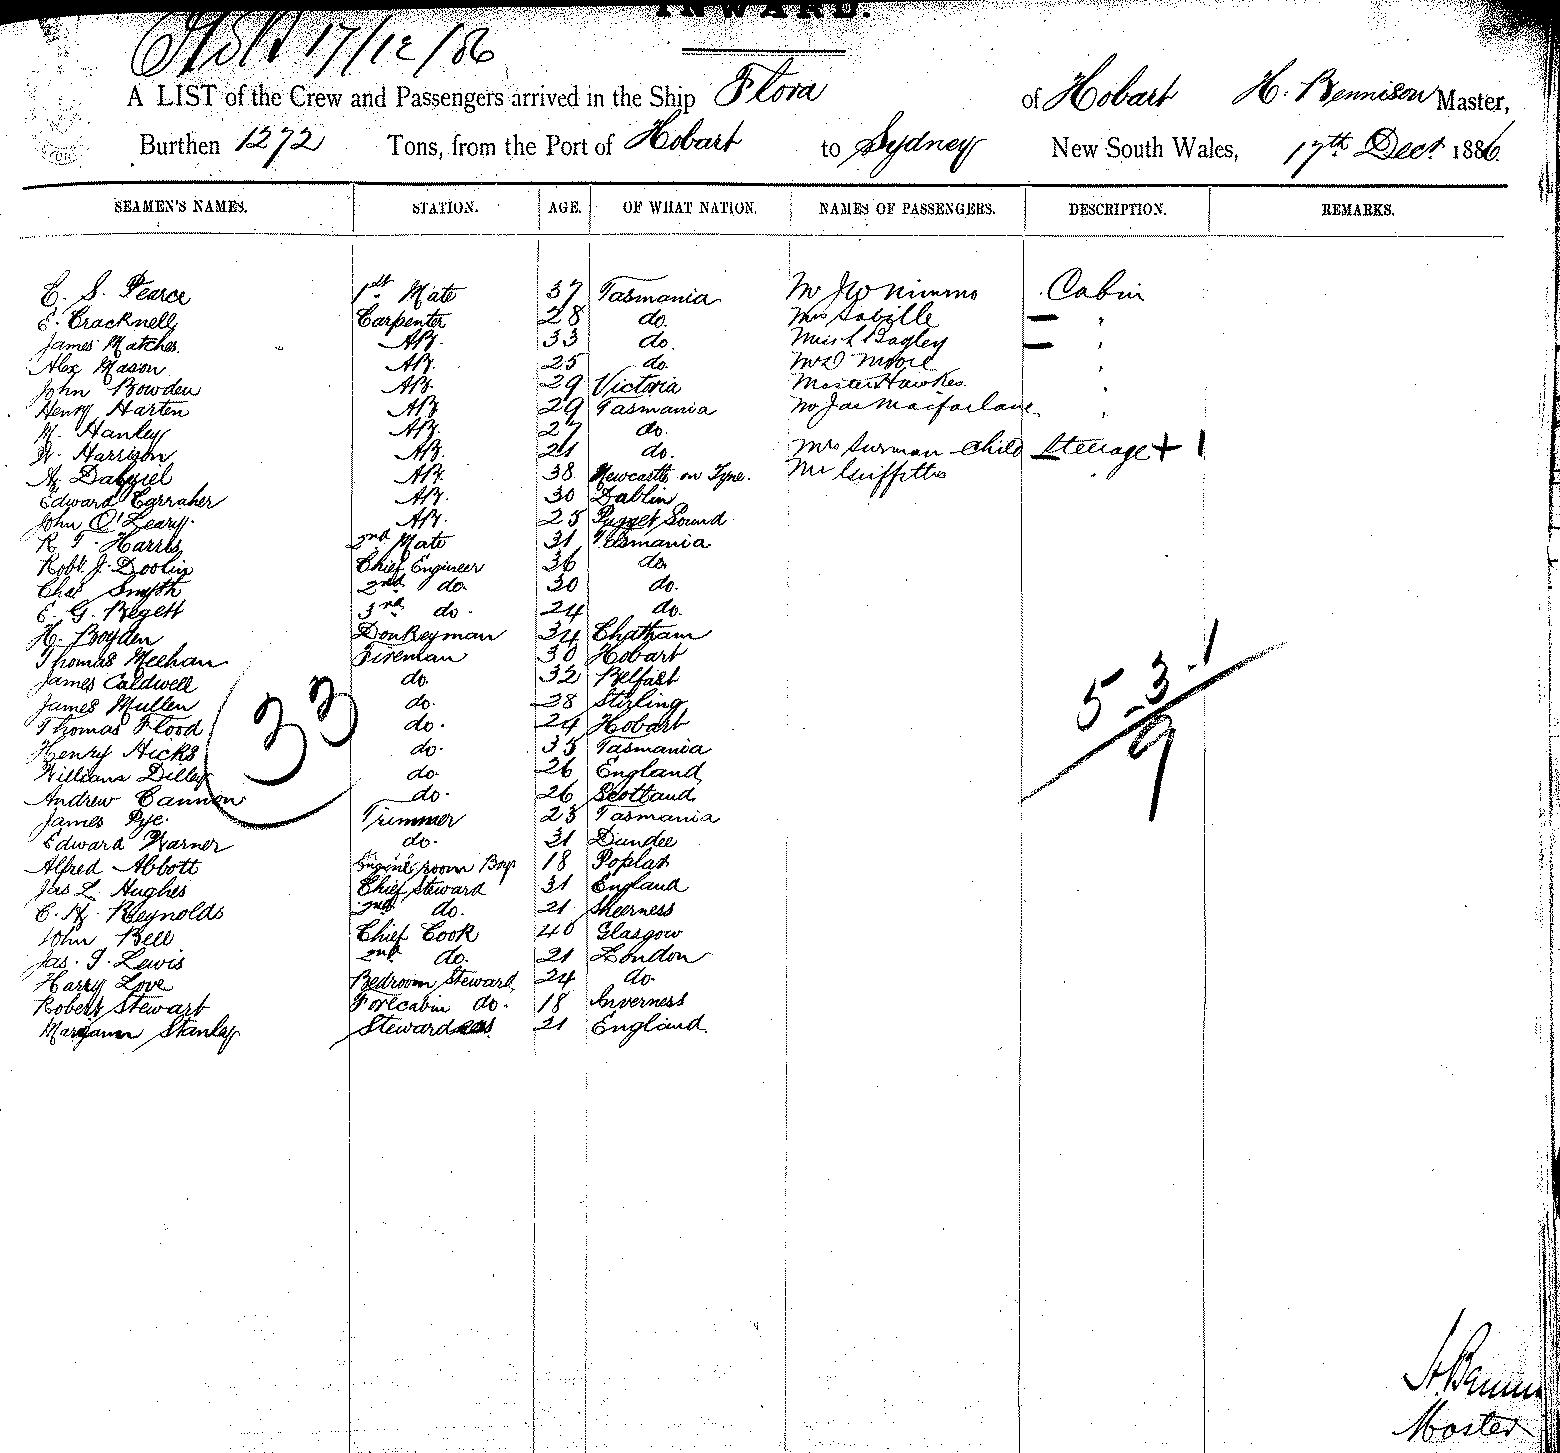 INWARD.
17/12/86
A LIST of the Crew and Passengers arrived in the Ship Flora of Hobart H. Bennison Master,
Burthen 1272 Tons, from the Port of Hobart to Sydney New South Wales, 17th Decr 1886
SEAMEN'S NAMES. STATION. AGE. OF WHAT NATION. NAMES OF PASSENGERS. DESCRIPTION. REMARKS.
E. S. Pearce 1st Mate 37 Tasmania Mr J W Nimmo Cabin
E. Cracknell Carpenter 28 do. Mrs Saville — "
James Matches. AB. 33 do. Miss L Bagley — "
Alex Mason AB. 25 do. Mr D Moore "
John Bowden AB. 29 Victoria Master Hawkes "
Henry Harten AB. 29 Tasmania Mr Jas Macfarlane "
M. Hanley AB. 27 do.
W. Harrison AB. 21 do. Mrs Surman Child Steerage + 1
A. Dalziel AB. 38 Newcastle on Tyne. Mr Griffiths "
Edward Carraher AB. 30 Dublin
John O'Leary. AB. 25 Pugget Sound
R. T. Harris 2nd Mate 31 Tasmania
Robt. J. Doolin Chief Engineer 36 do
Chas Smyth 2nd do. 30 do.
E. G. Begett 3rd do. 24 do.
H. Boyden Donkeyman 34 Chatham
Thomas Meehan Fireman 30 Hobart
James Caldwell do. 32 Belfast
James Mullen do. 28 Stirling
Thomas Flood do. 24 Hobart
Henry Hicks do. 35 Tasmania
William Dilley do. 26 England
Andrew Cannon do. 26 Scotland
James Pye. Trimmer 23 Tasmania
Edward Warner do. 31 Dundee
Alfred Abbott Engine room Boy 18 Poplar
Jas L. Hughes Chief Steward 31 England
C. H. Reynolds 2nd do. 21 Sheerness
John Bell Chief Cook 40 Glasgow
Jas. T. Lewis 2nd do. 21 London
Harry Love Bedroom Steward 24 do.
Robert Stewart Forecabin do. 18 Inverness
Maryann Stanley Stewardess 21 England.
33
5.3.1
9
H. Benni
Master